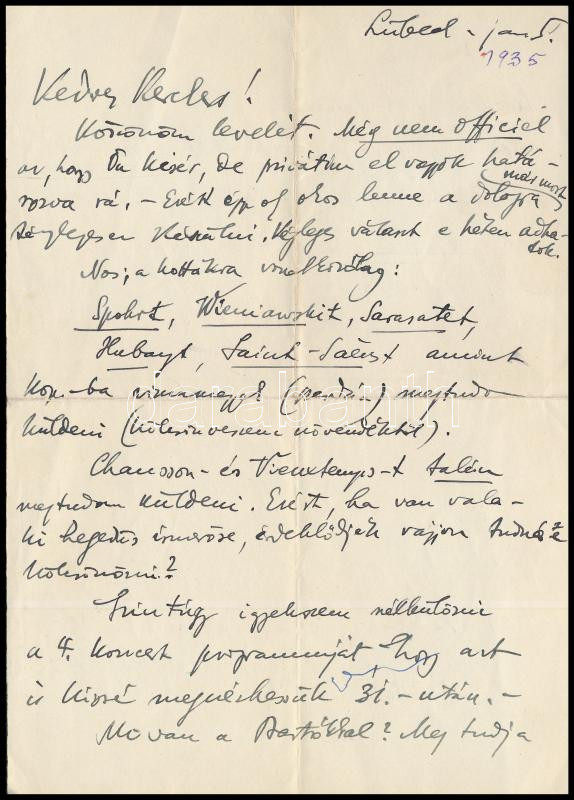 Lübeck - jan 5.
1935
Kedves Kerekes!
Köszönöm levelét. Még nem officiel
az, hogy Ön kísér, de privátim el vagyok hatá-
rozva rá. - Ezért épp oly okos lenne a dologra
már most
készülni. Végleges választ e héten adha-
tok.
Nos, a kottákra vonatkozólag:
Spohrt, Wieniawskit, Sarasatet,
Hubayt, Saint-Saënst amint
-ba visszamegyek megtudom
küldeni (kölcsönveszem növendéktől).
Chausson- és Vieuxtemps-t talán
megtudom küldeni. Ezért, ha van vala-
ki hegedűs ismerőse, érdeklődjék vajjon tudná-e
kölcsönözni?
Szintúgy igyekszem nélkülözni
a 4. koncert programmját hogy azt
is kissé megnézhessük 31. - után. -
Mi van a Bartókkal? Meg tudja
darabanth